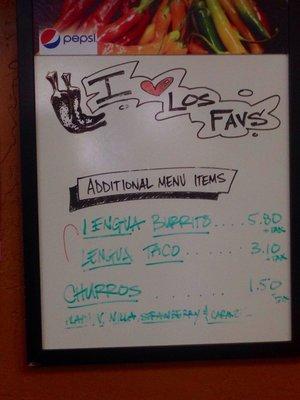 pepsi
I ♥ Los Favs
ADDITIONAL MENU ITEMS
LENGUA BURRITO..... 5.80
+TAX
LENGUA TACO ....... 3.10
+TAX
CHURROS ........ 1.50
+TAX
STRAWBERRY &